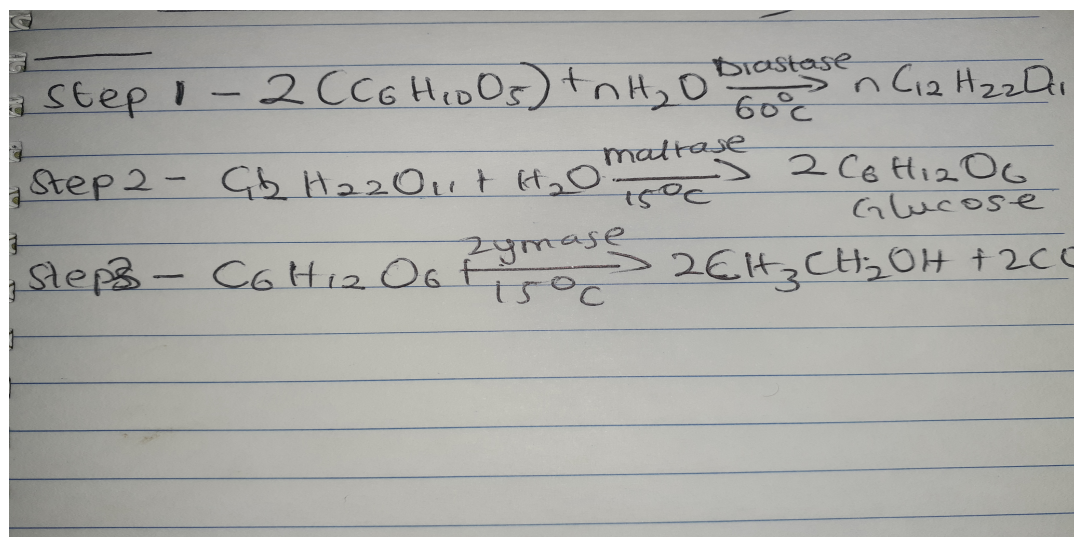 Step 1 - 2(C6H10O5) + nH2O Diastase 60°C → nC12H22O11
Step 2 - C12H22O11 + H2O maltase 15°C → 2C6H12O6
Glucose
Step 3 - C6H12O6 + zymase 15°C → 2CH3CH2OH + 2CO